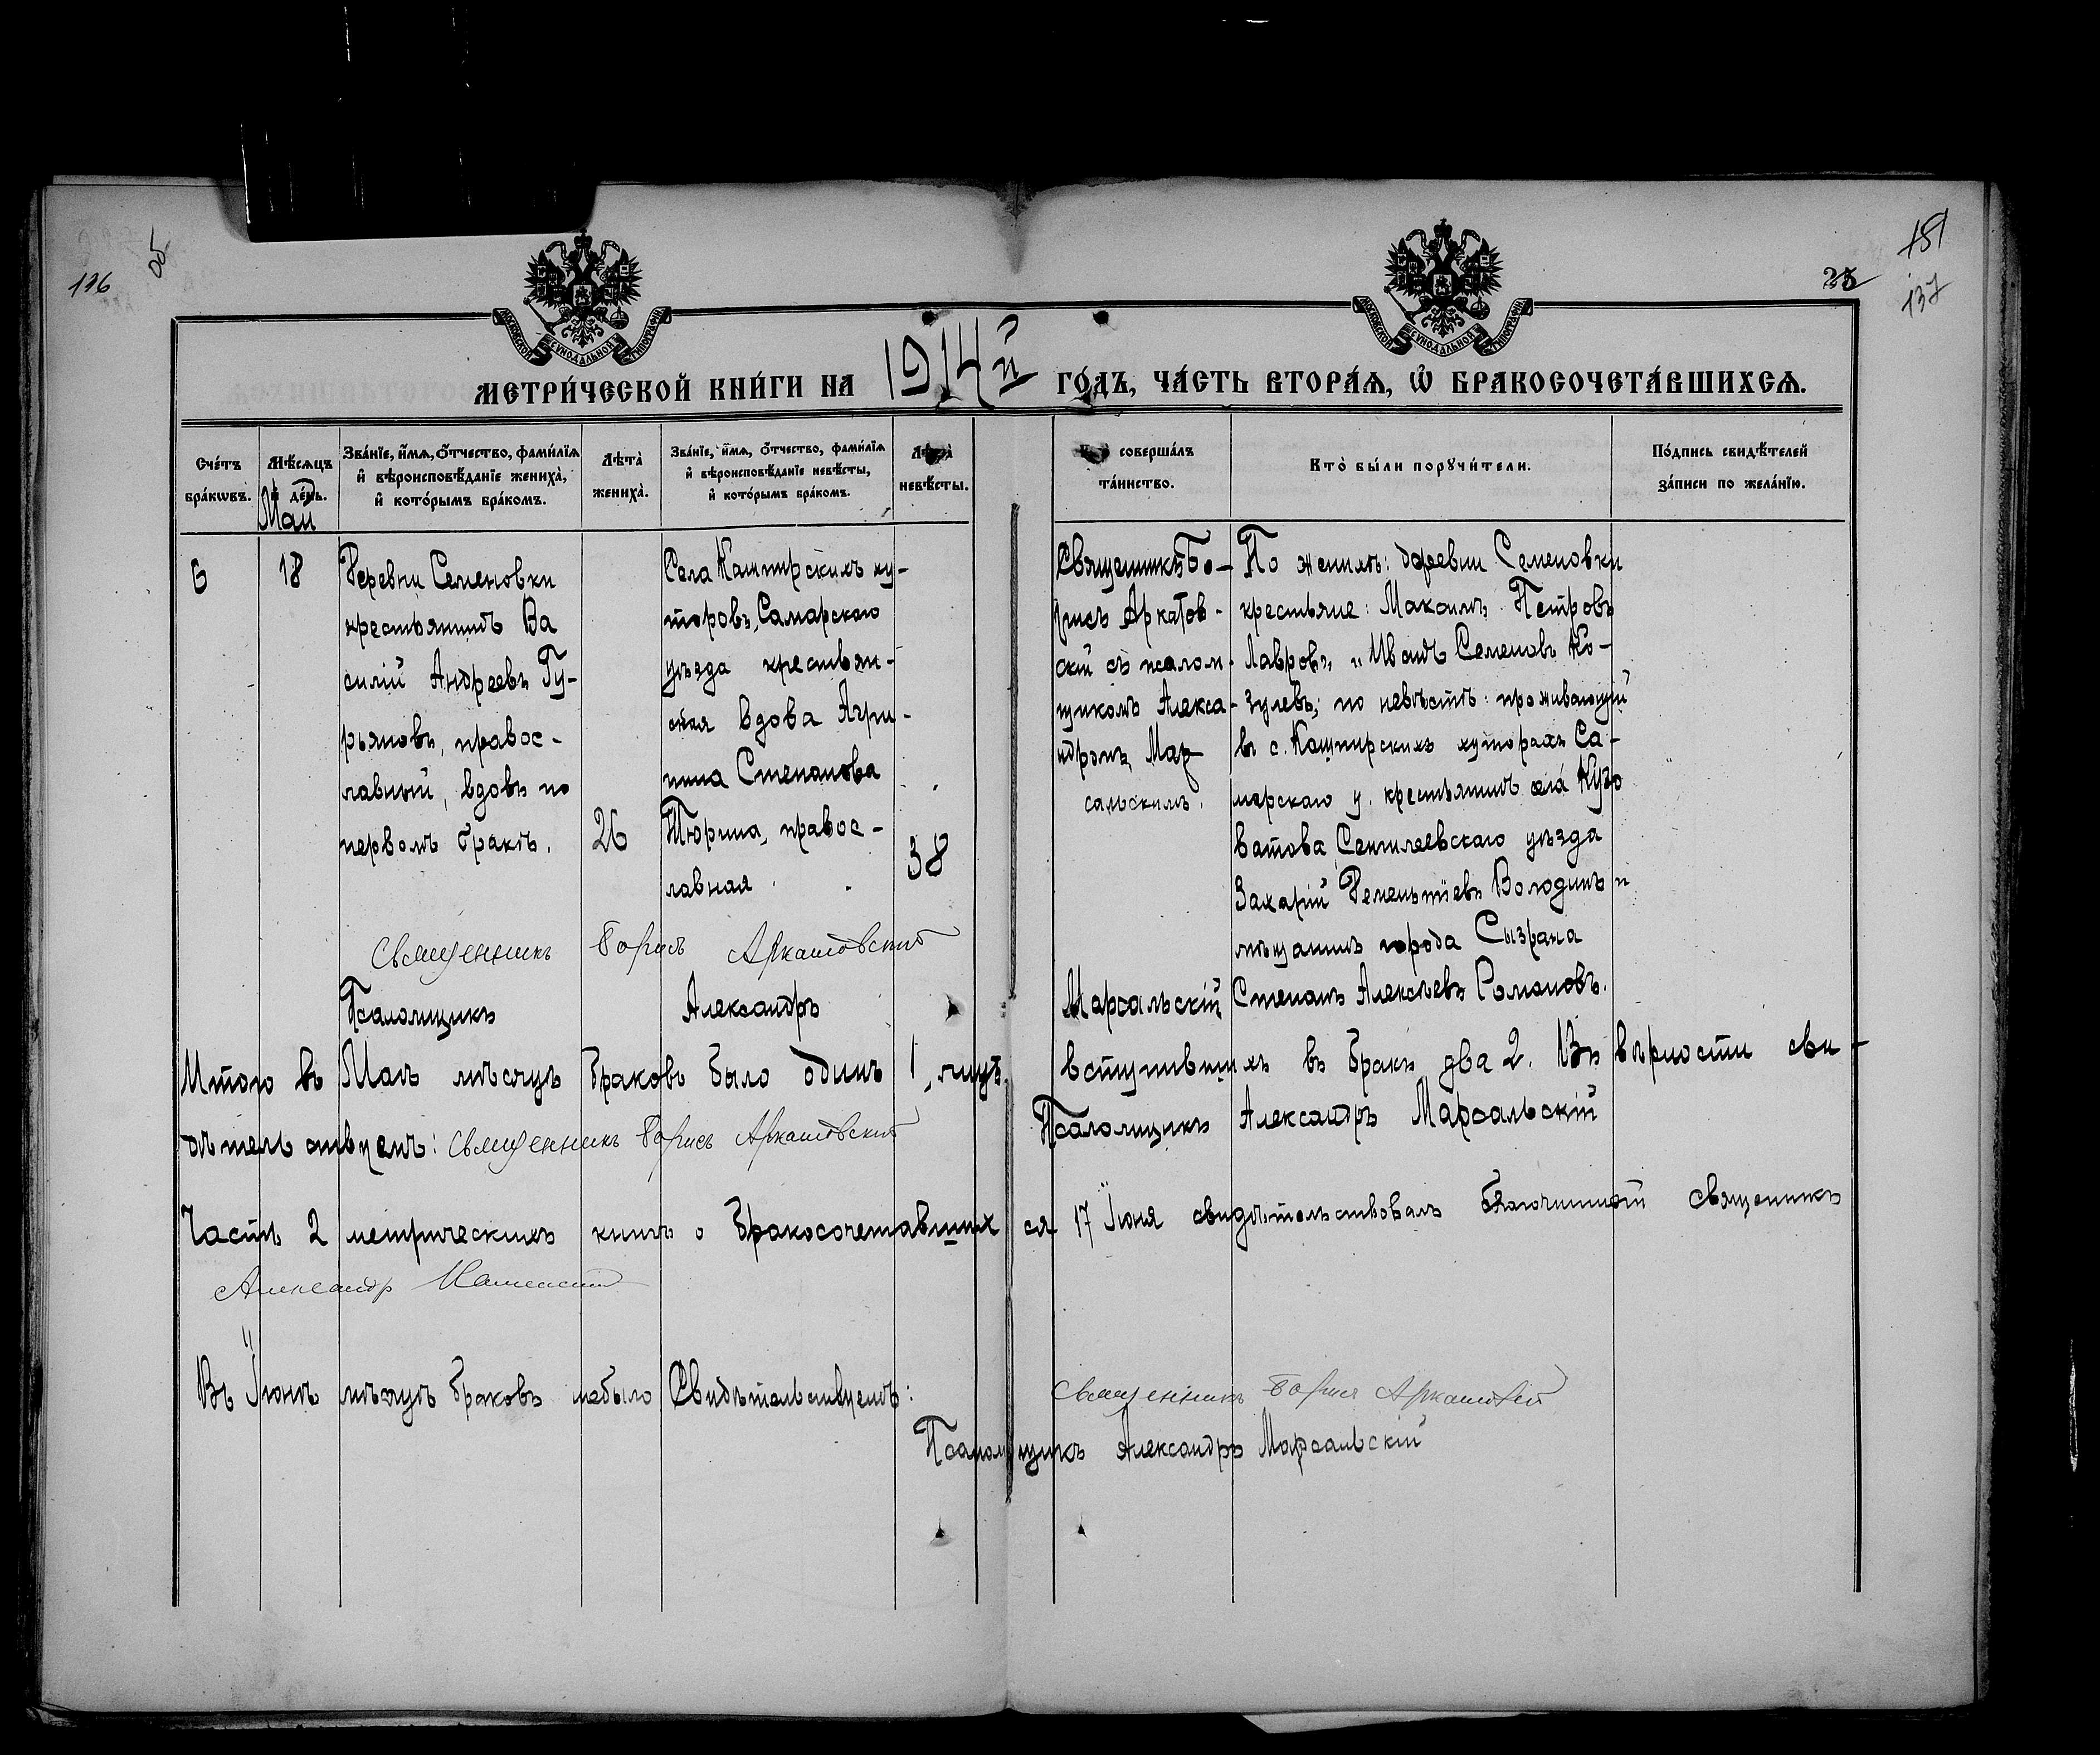 136
об
151
25
137
МОСКОВСКОЙ СѴНОДАЛЬНОЙ ТИПОГРАФІИ
МОСКОВСКОЙ СѴНОДАЛЬНОЙ ТИПОГРАФІИ
МЕТРИ́ЧЕСКОЙ КНИ́ГИ НА 1914й ГО́ДЪ, ЧА́СТЬ ВТОРА́Ѧ, Ѡ҆ БРАКОСОЧЕТА́ВШИХСѦ.
Сче́тъ
бра́кѡвъ.
Мѣ́сѧцъ
и҆ де́нь.
Май
Зва́нїе, и҆́мѧ, ѻ҆́тчество, фами́лїѧ
и҆ вѣроисповѣ́данїе жениха̀,
и҆ кото́рымъ бра́комъ.
Лѣта̀
жениха̀.
Зва́нїе, и҆́мѧ, ѻ҆́тчество, фами́лїѧ
и҆ вѣроисповѣ́данїе невѣ́сты,
и҆ кото́рымъ бра́комъ.
Лѣта̀
невѣ́сты.
Кто̀ соверша́лъ
та́инство.
Кто̀ бы́ли порꙋчи́тели.
По́дпись свидѣ́телей
за́писи по жела́нїю.
6
18
Деревни Семеновки
крестьянинъ Ва
силій Андреевъ Гу-
рьяновъ, правос-
лавный, вдовъ по
первомъ бракѣ.
26
Села Кашпирскихъ ху-
торовъ, Самарскаго
уѣзда крестьян-
ская вдова Агри-
пина Степанова
Тюрина, правос-
лавная
38
Священникъ Бо-
рисъ Аркатов-
скій съ псалом-
щикомъ Алекса-
ндромъ Мар
сальскимъ.
По женихѣ: деревни Семеновки
крестьяне: Максимъ Петровъ
Лавровъ, и Иванъ Семеновъ Ко-
зулевъ; по невѣстѣ: проживающій
въ с. Кашпирскихъ хуторахъ Са-
марскаго у. крестьянинъ села Кузо
ватова Сенгилеевскаго уѣзда
Захарій Дементіевъ Володинъ и
мѣщанинъ города Сызрана
Степанъ Алексѣевъ Романовъ.
Священникъ Борисъ Аркатовскій
Псаломщикъ Александръ Марсальскій
Итого въ Маѣ мѣсяцѣ браковъ было одинъ 1, лицъ вступившихъ въ бракъ два 2. Въ вѣрности сви-
дѣтельствуемъ: священникъ Борисъ Аркатовскій Псаломщикъ Александръ Марсальскій
Часть 2 метрическихъ книгъ о бракосочетавшихся 17 Іюня свидѣтельствовалъ благочинный священникъ
Александр
Въ Іюнѣ мѣсяцѣ браковъ небыло Свидѣтельствуемъ: Священникъ Борисъ Аркатовскій
Псаломщикъ Александръ Марсальскій